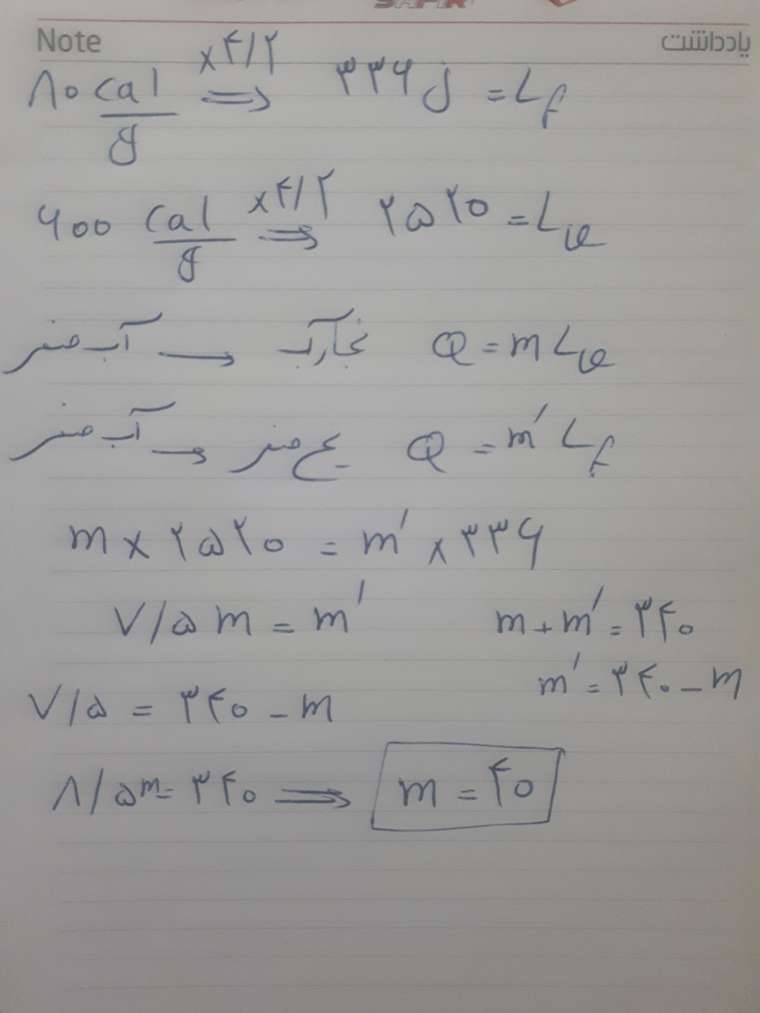 Note یادداشت
۸۰ cal/g ×۴/۲ ⇒ ۳۳۶ J = Lf
۶۰۰ cal/g ×۴/۲ ⇒ ۲۵۲۰ = Lv
آب صفر → بخار آب Q = mLv
آب صفر → یخ صفر Q = m′Lf
m × ۲۵۲۰ = m′ × ۳۳۶
۷/۵ m = m′ m + m′ = ۳۴۰
m′ = ۳۴۰ - m
۷/۵ = ۳۴۰ - m
۸/۵ m = ۳۴۰ ⇒ m = ۴۰